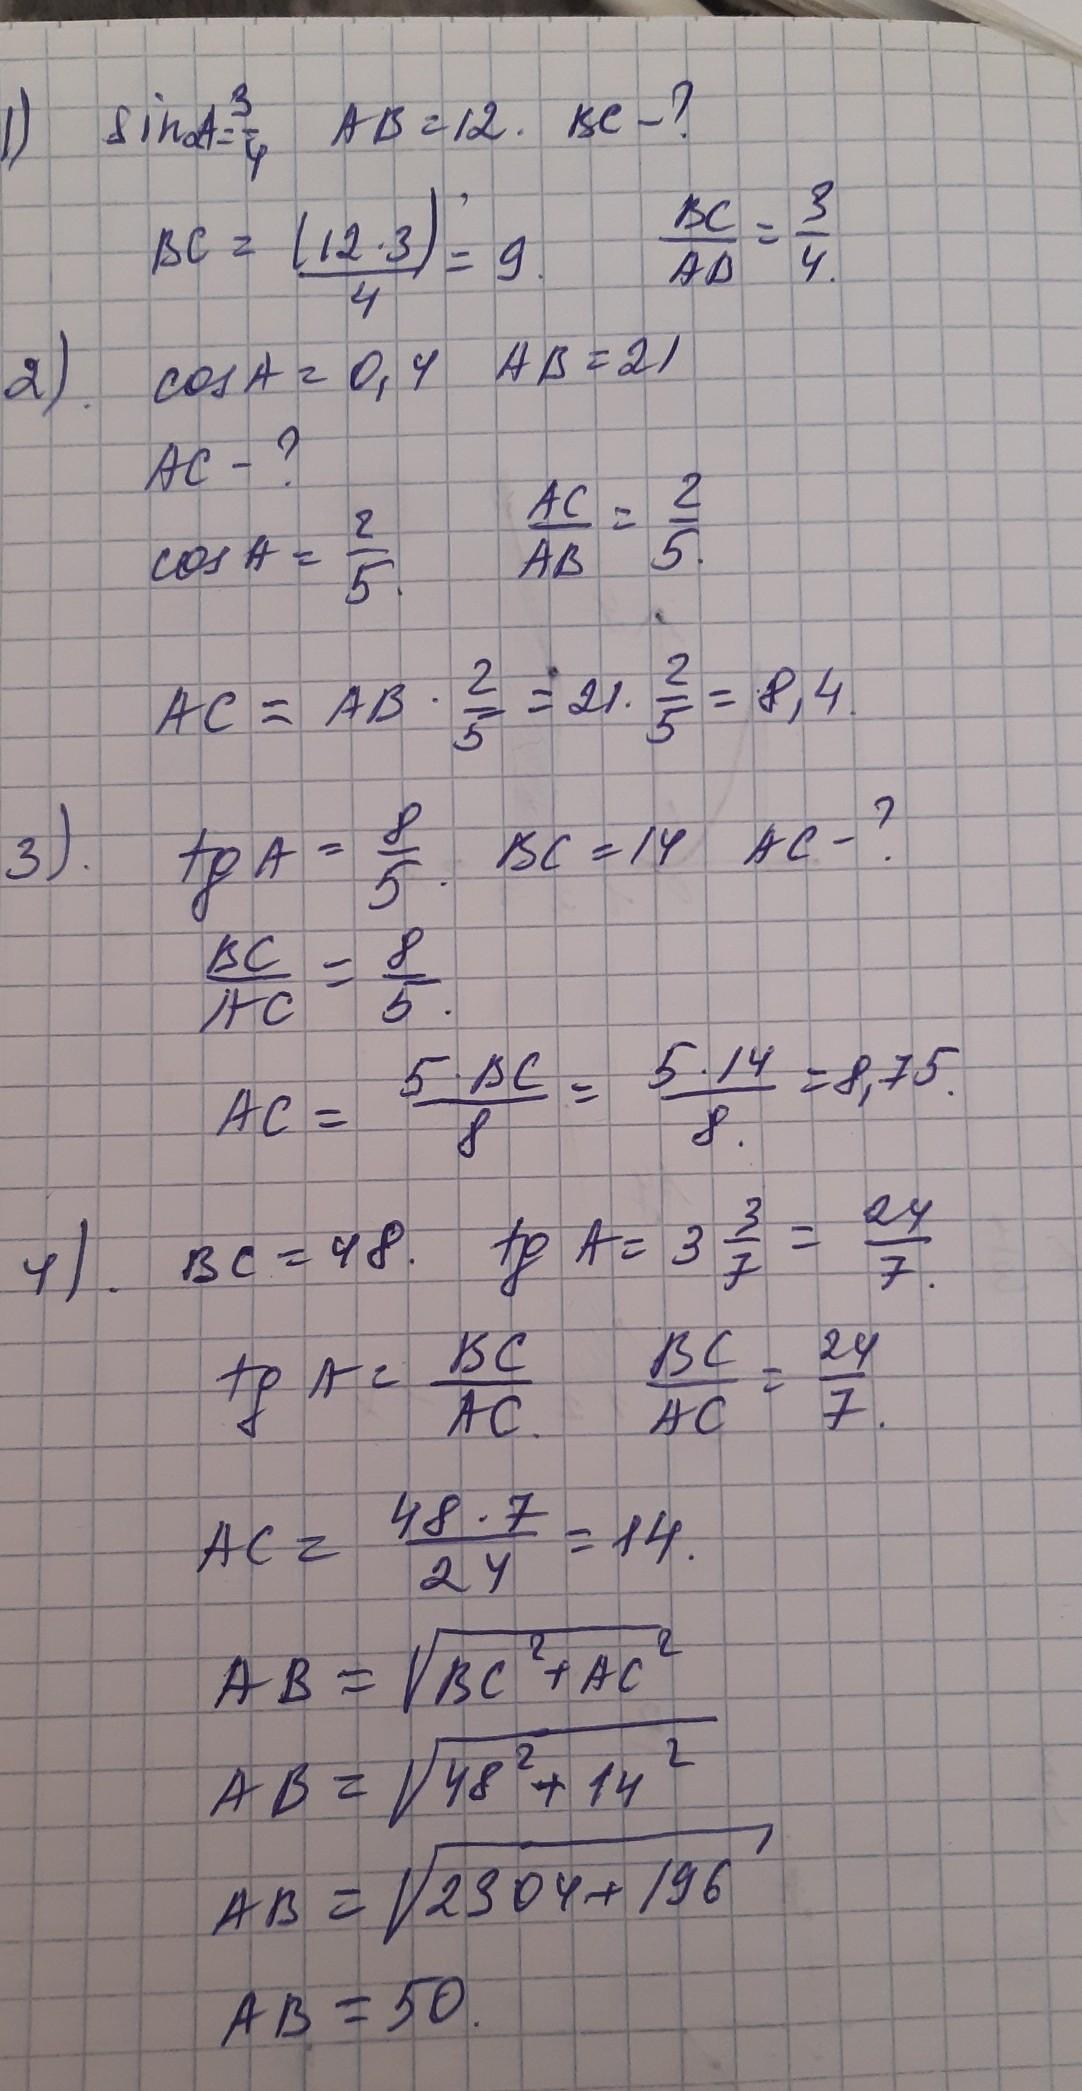 1) sin A = 3/4 AB = 12. BC - ?
BC = (12·3)/4 = 9. BC/AB = 3/4.
2). cos A = 0,4 AB = 21
AC - ?
cos A = 2/5. AC/AB = 2/5.
AC = AB · 2/5 = 21 · 2/5 = 8,4.
3). tg A = 8/5. BC = 14 AC - ?
BC/AC = 8/5.
AC = 5·BC/8 = 5·14/8. = 8,75.
4). BC = 48. tg A = 3 3/7 = 24/7.
tg A = BC/AC. BC/AC = 24/7.
AC = 48·7/24 = 14.
AB = √BC² + AC²
AB = √48² + 14²
AB = √2304 + 196
AB = 50.